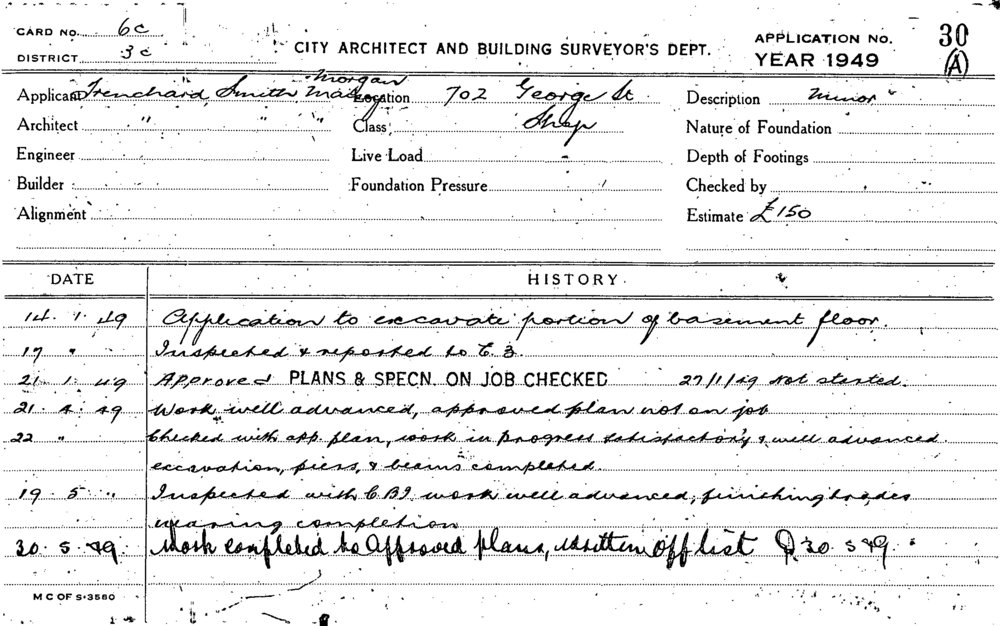 CARD NO. 6c
DISTRICT 3c
CITY ARCHITECT AND BUILDING SURVEYOR'S DEPT.
APPLICATION NO. 30
YEAR 1949 (A)
Morgan
Applicant Trenchard, Smith, Location 702 George St Description Minor
Architect " " Class Shop Nature of Foundation
Engineer Live Load - Depth of Footings
Builder Foundation Pressure Checked by
Alignment Estimate £150
DATE HISTORY
14. 1. 49 Application to excavate portion of basement floor.
17 " Inspected & reported to
21. 1. 49 Approved PLANS & SPECN. ON JOB CHECKED 27/1/49 Not started.
21. 4. 49 Work well advanced, approved plan not on job
22 " Checked with app. plan, work in progress satisfactory & well advanced
excavation, piers, & beams completed.
19. 5 " Inspected with CBI work well advanced, finishing trades
nearing completion
30. 5. 49. Work completed to Approved plans, written off list 30 5 49.
M C OF S-3560